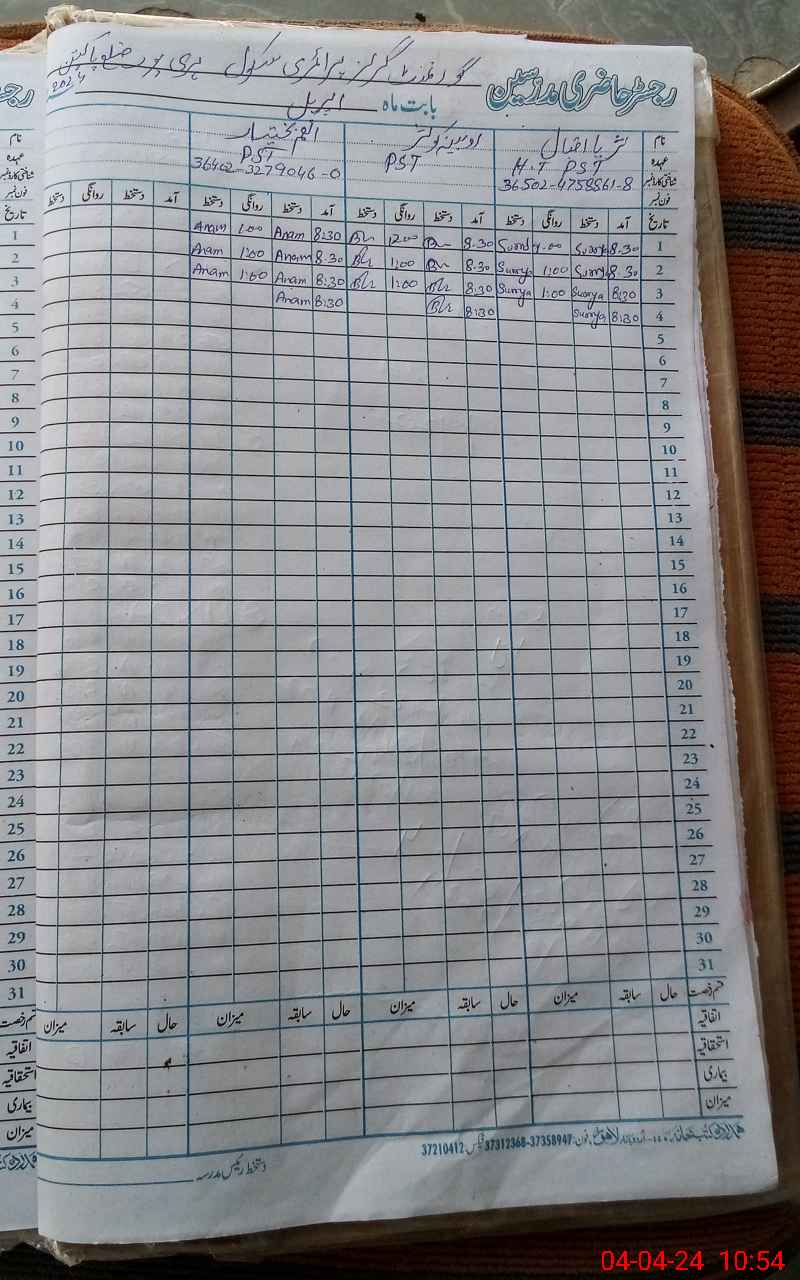 گورنمنٹ گرلز پرائمری سکول ہری پور ضلع پاکپتن
2024
رجسٹر حاضری مدرسین
بابت ماہ اپریل
نام ثریا اقبال انعم بختیار
عہدہ H.T PST PST PST
شناختی کارڈ نمبر 36502-4758861-8 36402-3279046-0
فون نمبر
تاریخ آمد دستخط روانگی دستخط آمد دستخط روانگی دستخط آمد دستخط روانگی دستخط آمد دستخط روانگی دستخط
1 8.30 12.00 8:30 Anam 1.00 Anam 1
2 8.30 1:00 8.30 1:00 8.30 Anam 1:00 Anam 2
3 8:30 1:00 8:30 1:00 8:30 Anam 1:00 Anam 3
4 8:30 8:30 8:30 Anam 4
5 5
6 6
7 7
8 8
9 9
10 10
11 11
12 12
13 13
14 14
15 15
16 16
17 17
18 18
19 19
20 20
21 21
22 22
23 23
24 24
25 25
26 26
27 27
28 28
29 29
30 30
31 31
قسم رخصت حال سابقہ میزان حال سابقہ میزان حال سابقہ میزان حال سابقہ میزان
اتفاقیہ اتفاقیہ
استحقاقیہ استحقاقیہ
بیماری بیماری
میزان میزان
لاہور فون: 37358947-37312368 فیکس: 37210412
دستخط رئیس مدرسہ
04-04-24 10:54